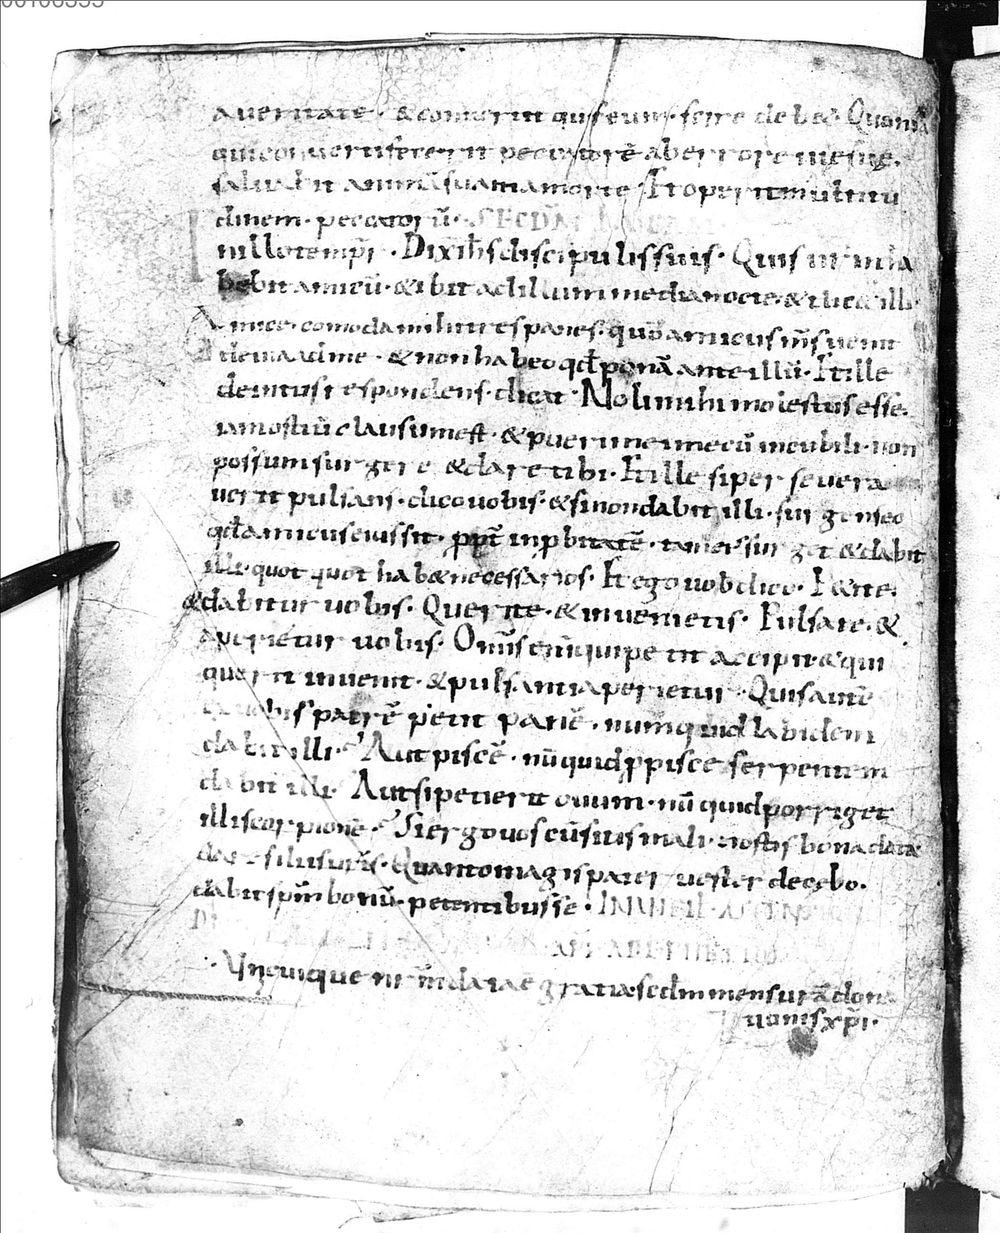 a ueritate · & conuertit quis eum · scire debe& Quoniā
qui conuerti fecerit peccatorē ab errore uie sue.
saluabit animā suam a morte · Et operit multitu
dinem · peccatorū · SECDM
n illo tempr̄ · Dix̄ ih̄s discipulis suis · Quis ur̄m ha
bebit amicū · & ibit ad illum media nocte · & dic& illi
Amice · comoda mihi tres panes · quō amicus m̄s uenit
de uia ad me · & non habeo qđ ponā ante illū · Et ille
deintus respondens · dicat · Noli mihi molestus esse ·
iam ostiū clausum est · & pueri mei mecū in cubili · non
possum surgere · & dare tibi · Et ille si perseuera
uerit pulsans · dico uobis · & si non dabit illi · surgens eo
qđ amicus eius sit · ppt̄ inpbitatē · tamen surg& & dabit
illi · quot quot hab& necessarios · Et ego uob dico · P&ite ·
& dabitur uobis · Querite · & inuenietis · Pulsate · &
aperietur uobis · Omīs enī qui petit accipit · & qui
querit inuenit · & pulsanti aperietur · Quis autē
ex uobis patrē petit panē · numquid labidem
dabit illi · Aut piscē · nūquid ppisce serpentem
dabit illi · Aut si petierit ouum · nū quid porriget
illi scorpionē · Si ergo uos cū sitis mali · nostis bona data
dare filiis ur̄is · Quanto magis pater uester de celo ·
dabit spm̄ bonū · petentibus se ·
· Vnicuique nr̄m data ē gratia · scdm mensurā dona
tionis xp̄i ·